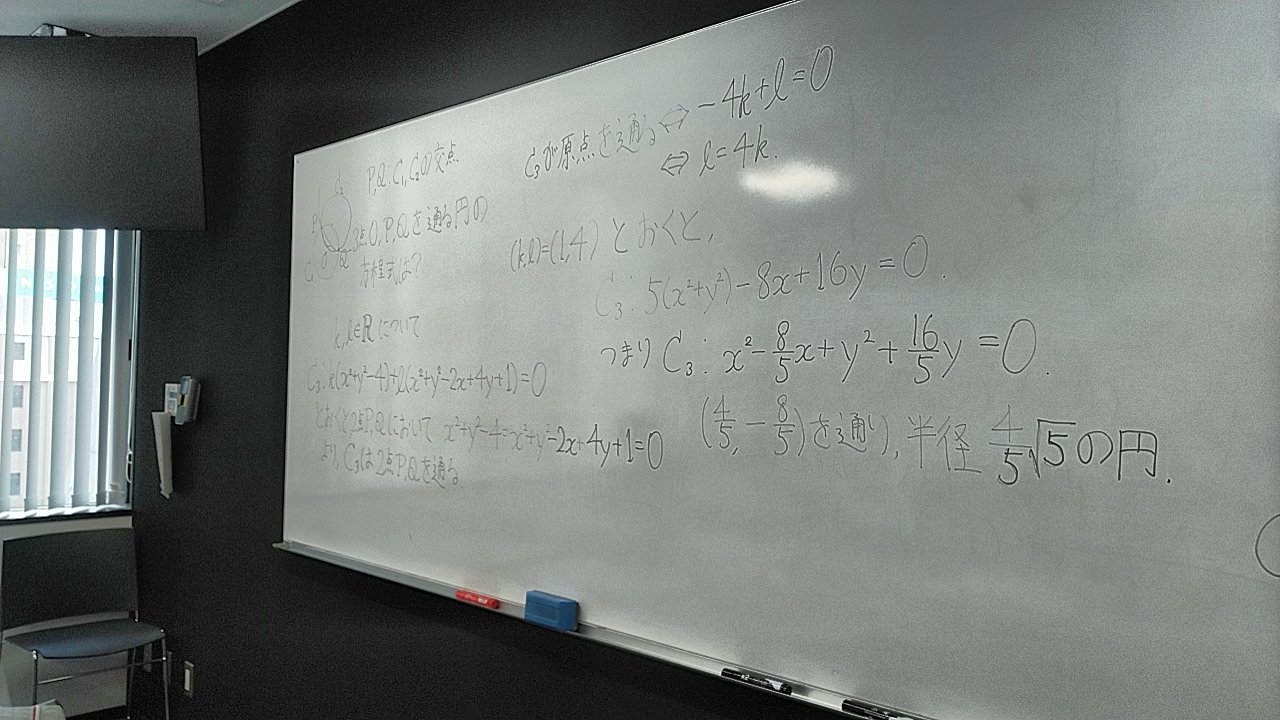 P,Q:C₁,C₂の交点
C₂
P
3点O,P,Qを通る円の
C₁
O
Q
方程式は?
k,l∈Rについて
C₃:k(x²+y²-4)+l(x²+y²-2x+4y+1)=0
とおくと2点P,Qにおいて x²+y²-4=x²+y²-2x+4y+1=0
より,C₃は2点P,Qを通る
C₃が原点を通る⇔-4k+l=0
⇔l=4k.
(k,l)=(1,4)とおくと,
C₃:5(x²+y²)-8x+16y=0.
つまりC₃:x²-8/5x+y²+16/5y=0.
(4/5,-8/5)を通り,半径4/5√5の円.